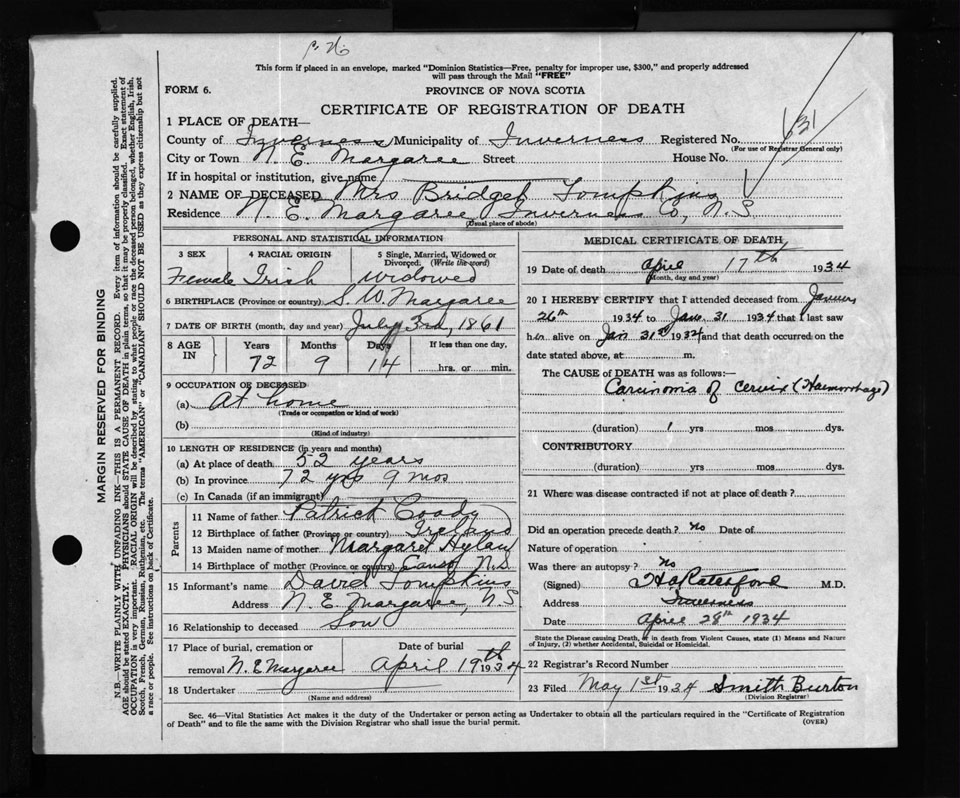 This form if placed in an envelope, marked "Dominion Statistics—Free, penalty for improper use, $300," and properly addressed
will pass through the Mail "FREE"
FORM 6.
PROVINCE OF NOVA SCOTIA
CERTIFICATE OF REGISTRATION OF DEATH
1 PLACE OF DEATH—
County of Inverness Municipality of Inverness Registered No. 631
(For use of Registrar General only)
City or Town N. E. Margaree Street House No.
If in hospital or institution, give name
2 NAME OF DECEASED Mrs Bridget Tompkins
Residence N. E. Margaree Inverness Co, N. S
(Usual place of abode)
PERSONAL AND STATISTICAL INFORMATION
3 SEX 4 RACIAL ORIGIN 5 Single, Married, Widowed or Divorced. (Write the word)
Female Irish Widowed
6 BIRTHPLACE (Province or country) S. W. Margaree
7 DATE OF BIRTH (month, day and year) July 3rd, 1861
8 AGE IN Years Months Days If less than one day.
72 9 14 hrs. or min.
9 OCCUPATION OF DECEASED
(a) At home
(Trade or occupation or kind of work)
(b)
(Kind of industry)
10 LENGTH OF RESIDENCE (in years and months)
(a) At place of death 52 years
(b) In province 72 yrs 9 mos
(c) In Canada (if an immigrant)
Parents
11 Name of father Patrick Coady
12 Birthplace of father (Province or country) Ireland
13 Maiden name of mother Margaret Hylan
14 Birthplace of mother (Province or country) Canso N.S.
15 Informant's name David Tompkins
Address N. E. Margaree, N.S
16 Relationship to deceased Son
17 Place of burial, cremation or Date of burial
removal N. E Margaree April 19th 1934
18 Undertaker
(Name and address)
MEDICAL CERTIFICATE OF DEATH
19 Date of death April 17th 1934
(Month, day and year)
20 I HEREBY CERTIFY that I attended deceased from January
26th 1934 to Jan. 31 1934 that I last saw
her alive on Jan 31st 1934 and that death occurred on the
date stated above, at m.
The CAUSE of DEATH was as follows:—
Carcinoma of cervix (Haemorrhage)
(duration) 1 yrs mos dys.
CONTRIBUTORY
(duration) yrs mos dys.
21 Where was disease contracted if not at place of death?
Did an operation precede death? no Date of
Nature of operation
Was there an autopsy? No
(Signed) M.D.
Address Inverness
Date April 28th 1934
State the Disease causing Death, or in death from Violent Causes, state (1) Means and Nature
of Injury, (2) whether Accidental, Suicidal or Homicidal.
22 Registrar's Record Number
23 Filed May 1st 1934 Smith Burton
(Division Registrar)
Sec. 46—Vital Statistics Act makes it the duty of the Undertaker or person acting as Undertaker to obtain all the particulars required in the "Certificate of Registration
of Death" and to file the same with the Division Registrar who shall issue the burial permit. (OVER)
MARGIN RESERVED FOR BINDING
N.B.—WRITE PLAINLY WITH UNFADING INK—THIS IS A PERMANENT RECORD. Every item of information should be carefully supplied.
AGE should be stated EXACTLY. PHYSICIANS should STATE CAUSE OF DEATH in plain terms, so that it may be properly classified. Exact statement of
OCCUPATION is very important. RACIAL ORIGIN will be described by stating to what people or race the deceased person belonged, whether English, Irish,
Scotch, French, German, Russian, Ruthenian, etc. The terms "AMERICAN" or "CANADIAN" SHOULD NOT BE USED as they express citizenship but not
a race or people. See instructions on back of Certificate.